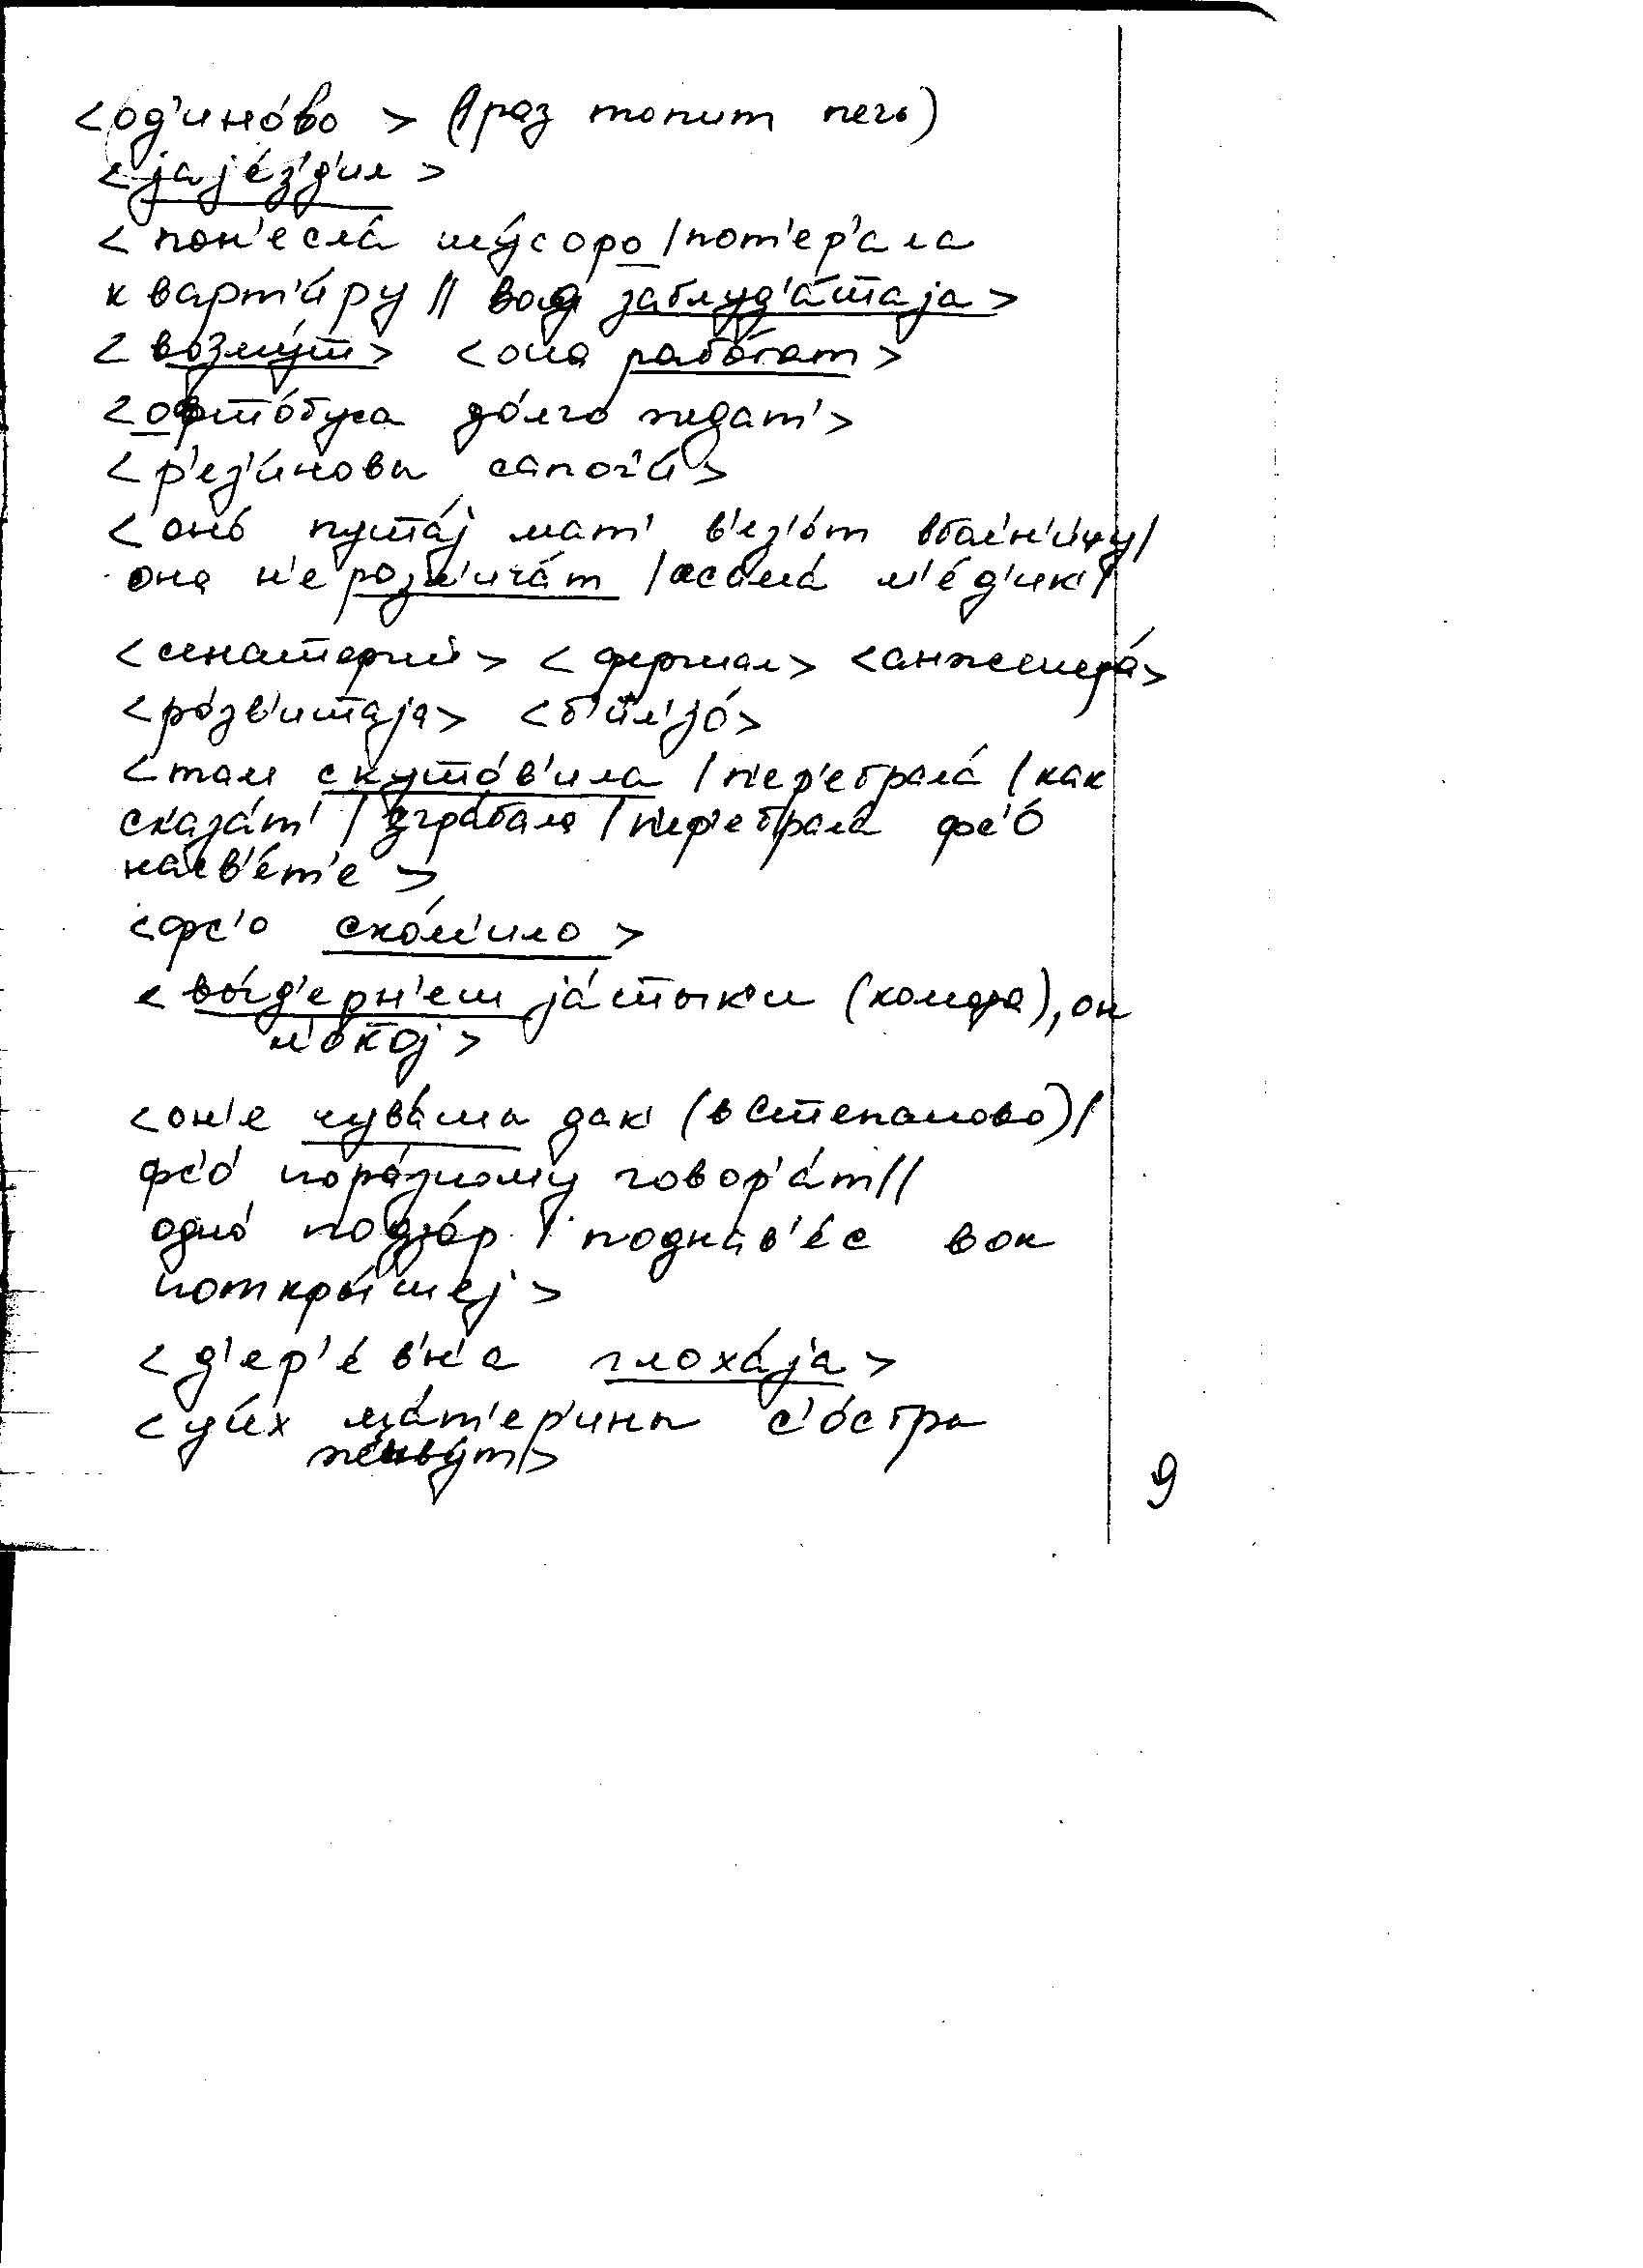 <од'ино́во> (1 раз топит печь)
<jа jе́з'д'ил>
<пон'есла́ му́соро / пот'ер'ала
кварт'и́ру // вод заблуд'а́шшаjа>
<возму́т> <она рабо́тат>
<офто́буса до́лго ждат'>
<р'ез'и́новы сапог'и́>
<оно́ пуска́j мат' в'ез'о́т вбал'н'и́цу/
она н'е розл'ича́т / сама́ м'е́д'ик/
<сенаторий> <фершал> <анжене́ра́>
<ро́зв'итаjа> <б'ил'jо́>
<там скуто́в'ила / п'ер'ебрала́ / как
сказа́т' / зграбала / п'ер'ебрала́ фс'о́
насв'е́т'е>
<фс'о ско́м'ило>
<вы́д'ерн'еш jа́стыки (комдра), он
л'о́гкоj>
<он'е чува́шы дак (в Степаново)/
фс'о́ пора́зному говор'а́т//
одно́ подзо́р / поднав'е́с вон
поткры́шеj>
<д'ер'е́вн'а глоха́jа>
<уи́х ма́т'ер'ины с'о́стры
живу́т>
9